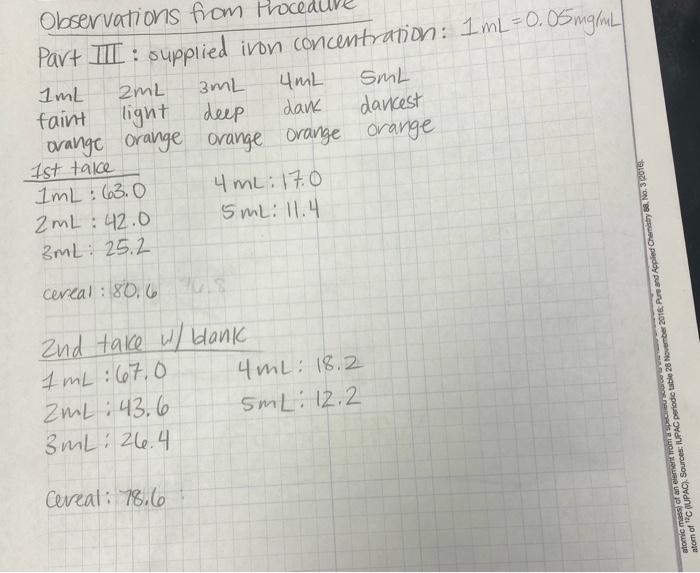 Observations from Procedure
Part III : supplied iron concentration: 1mL = 0.05mg/mL
1mL 2mL 3mL 4mL 5mL
faint light deep dark darkest
orange orange orange orange orange
1st take
1mL : 63.0 4mL : 17.0
2mL : 42.0 5mL : 11.4
3mL : 25.2
cereal : 80.6
2nd take w/ blank
1mL : 67.0 4mL : 18.2
2mL : 43.6 5mL : 12.2
3mL : 26.4
Cereal : 78.6
atom of ¹²C (IUPAC). Sources: IUPAC periodic table 28 November 2016; Pure and Applied Chemistry 88, No. 3 (2016).